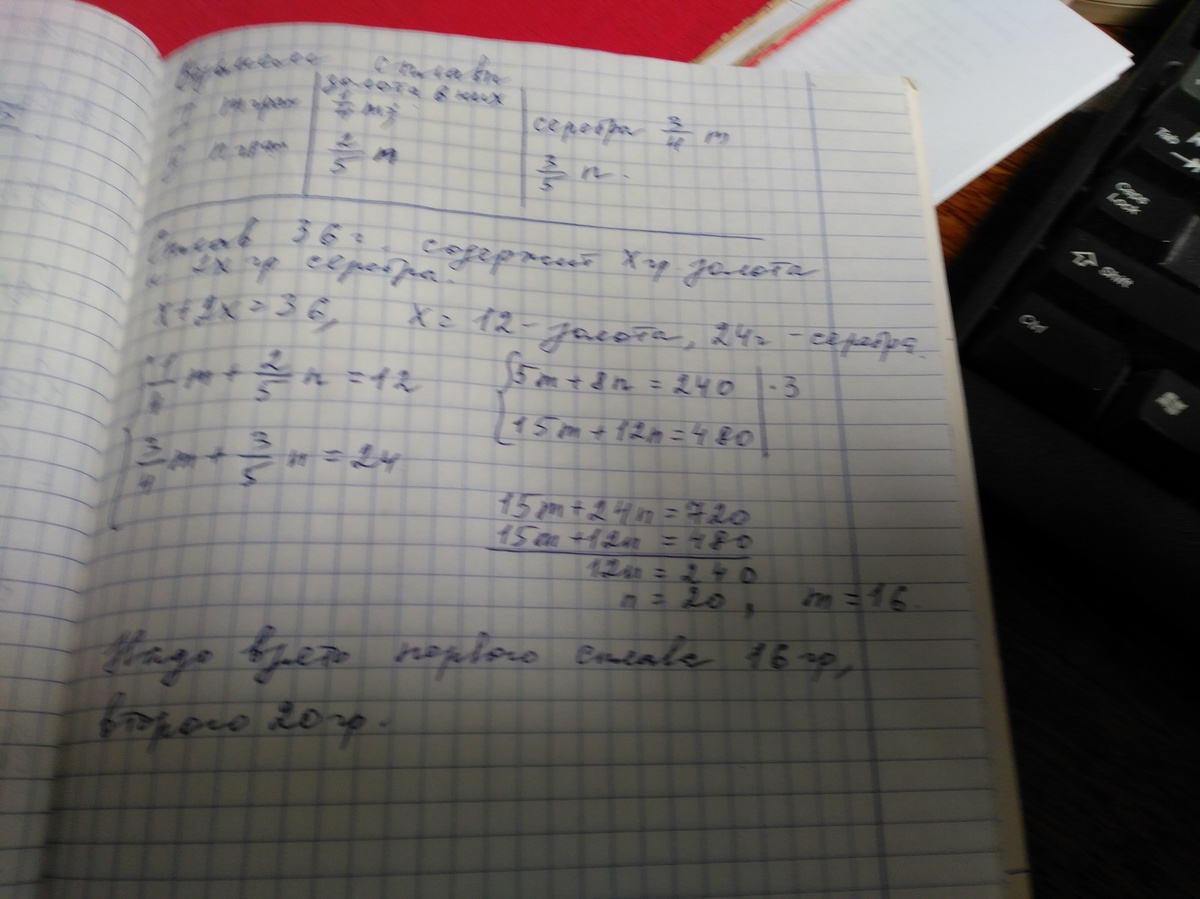 сплавы
золота в них
I m гран 1/4 m; серебра 3/4 m
II n гран 2/5 n 3/5 n.
Сплав 36г. содержит x гр. золота
и 2x гр серебра.
x+2x=36, x=12 - золота, 24г - серебра.
1/4 m + 2/5 n = 12 5m+8n=240 | ·3
3/4 m + 3/5 n = 24 15m+12n=480
15m+24n=720
15m+12n=480
12n=240
n=20, m=16.
Надо взять первого сплава 16 гр,
второго 20 гр.
Tab
Caps Lock
Shift
Ctrl